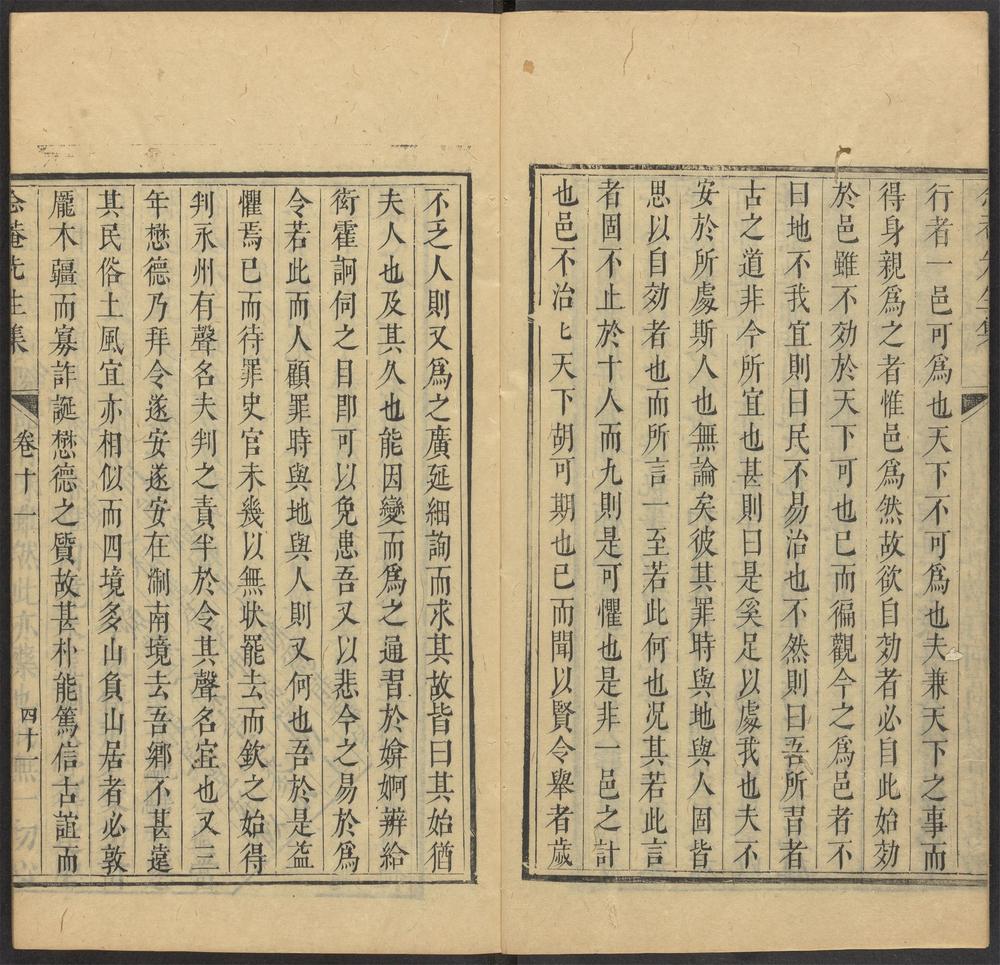 行者一邑可爲也天下不可爲也夫兼天下之事而
得身親爲之者惟邑爲然故欲自効者必自此始効
於邑雖不効於天下可也已而徧觀今之爲邑者不
曰地不我宜則曰民不易治也不然則曰吾所習者
古之道非今所宜也甚則曰是奚足以處我也夫不
安於所處斯人也無論矣彼其罪時與地與人固皆
思以自効者也而所言一至若此何也况其若此言
者固不止於十人而九則是可懼也是非一邑之計
也邑不治匕天下胡可期也已而聞以賢令舉者歲
不乏人則又爲之廣延細詢而求其故皆曰其始猶
夫人也及其久也能因變而爲之通習於媕婀辨給
衒霍詗伺之目卽可以免患吾又以悲今之易於爲
令若此而人顧罪時與地與人則又何也吾於是益
懼焉已而待罪史官未幾以無狀罷去而欽之始得
判永州有聲名夫判之責半於令其聲名宜也又三
年懋德乃拜令遂安遂安在淛南境去吾鄉不甚遠
其民俗土風宜亦相似而四境多山負山居者必敦
厖木疆而寡詐誕懋德之質故甚朴能篤信古誼而
念菴先生集
卷十一
四十一